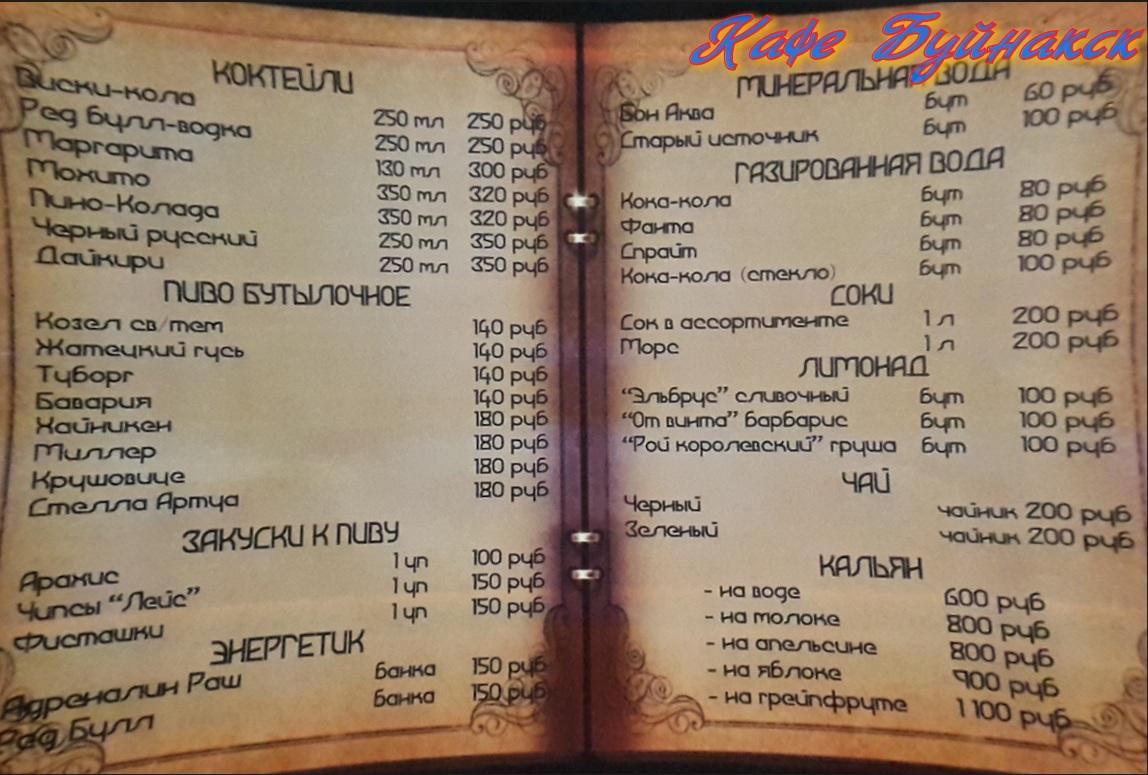 Кафе Буйнакск
КОКТЕЙЛИ
Виски-кола 250 мл 250 руб
Ред Булл-водка 250 мл 250 руб
Маргарита 130 мл 300 руб
Мохито 350 мл 320 руб
Пино-Колада 350 мл 320 руб
Черный русский 250 мл 350 руб
Дайкири 250 мл 350 руб
ПИВО БУТЫЛОЧНОЕ
Козел св/тем 140 руб
Жатецкий гусь 140 руб
Туборг 140 руб
Бавария 140 руб
Хайникен 180 руб
Миллер 180 руб
Крушовице 180 руб
Стелла Артуа 180 руб
ЗАКУСКИ К ПИВУ
Арахис 1 уп 100 руб
Чипсы “Лейс” 1 уп 150 руб
Фисташки 1 уп 150 руб
ЭНЕРГЕТИК
Адреналин Раш банка 150 руб
Ред Булл банка 150 руб
МИНЕРАЛЬНАЯ ВОДА
Бон Аква бут 60 руб
Старый источник бут 100 руб
ГАЗИРОВАННАЯ ВОДА
Кока-кола бут 80 руб
Фанта бут 80 руб
Спрайт бут 80 руб
Кока-кола (стекло) бут 100 руб
СОКИ
Сок в ассортименте 1 л 200 руб
Морс 1 л 200 руб
ЛИМОНАД
“Эльбрус” сливочный бут 100 руб
“От винта” барбарис бут 100 руб
“Рой королевский” груша бут 100 руб
ЧАЙ
Черный чайник 200 руб
Зеленый чайник 200 руб
КАЛЬЯН
- на воде 600 руб
- на молоке 800 руб
- на апельсине 800 руб
- на яблоке 900 руб
- на грейпфруте 1100 руб